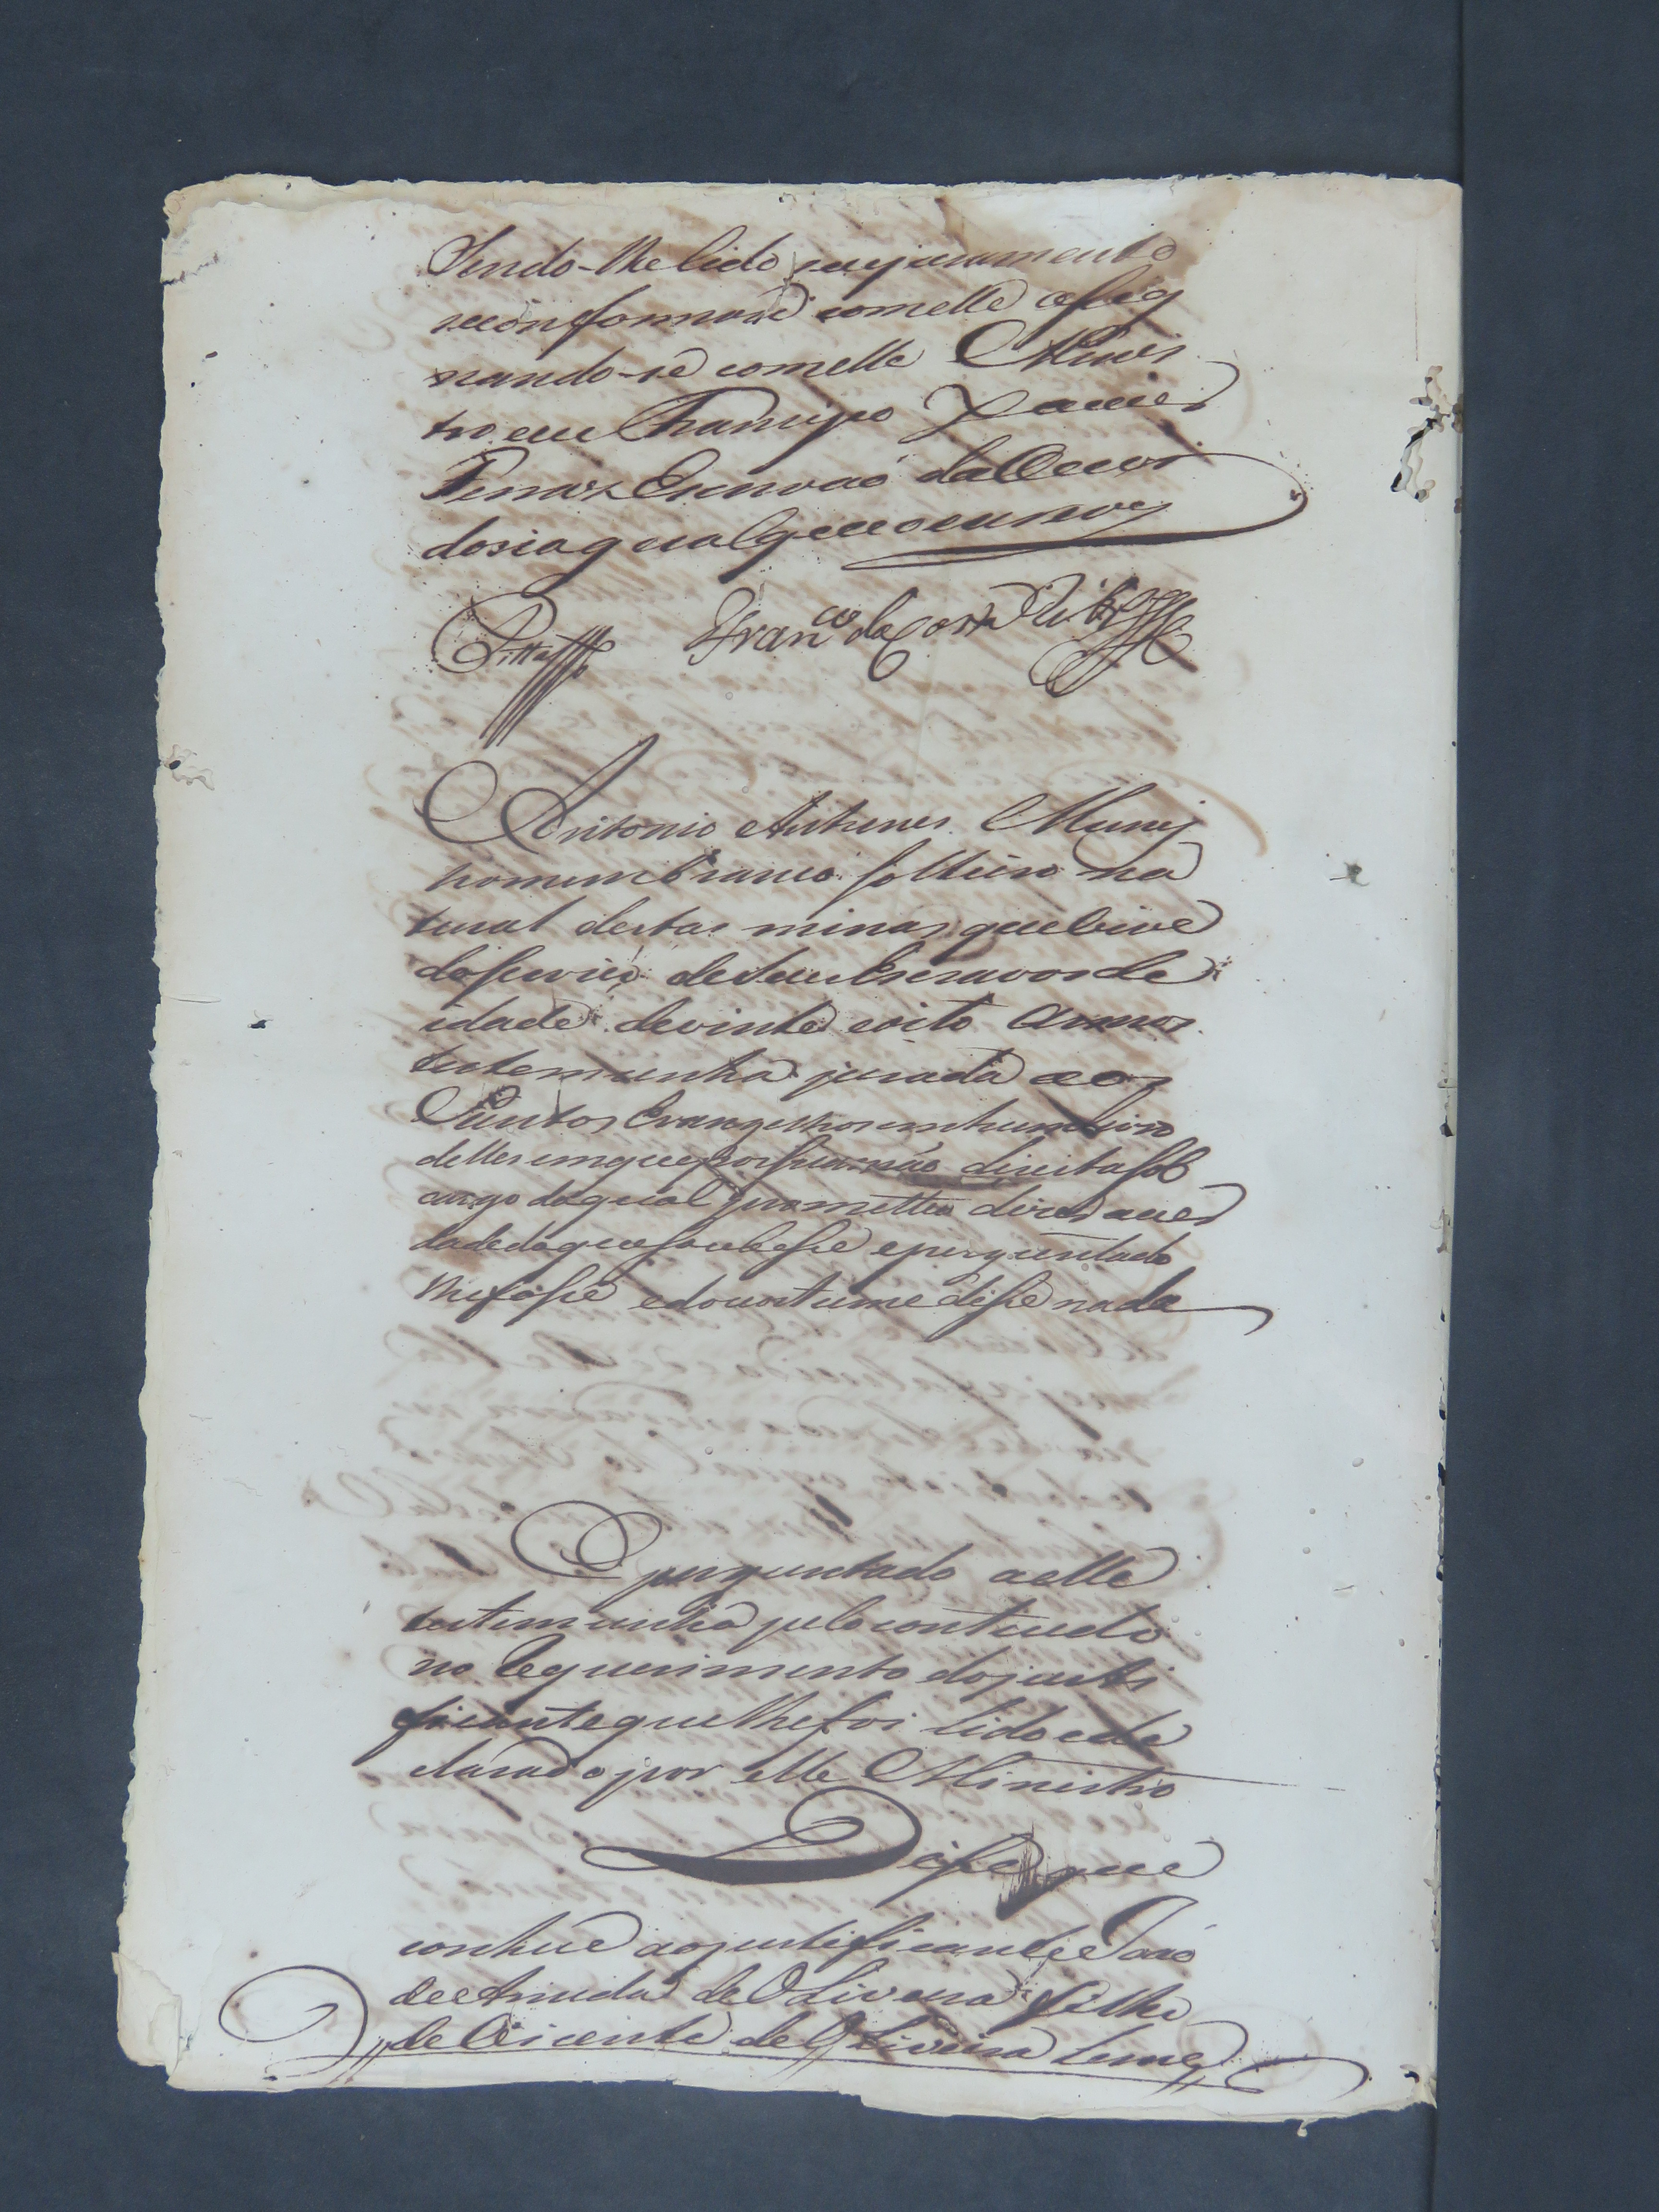 Sendo-lhe lido seu juramento
se conformou com elle asig
nando-se com elle Minis
tro eu Francisco Xavier
Ferraz Escrivaõ da Ouvi
doria a qual que o escrevy
Pitta Fran.co da Costa Rib.ro
Antonio Antunes Muniz
homem branco solteiro na
tural destas minas que vive
do servico de seus Escravos de
idade de vinte e oito annos
testemunha jurada aos
Santos Evangelhos em hum livro
delles em que pos sua maõ direita sob
cargo do qual prometteu dizer a ver
dade do que soubesse e perguntado
lhe fosse e do costume disse nada
E perguntado a elle
testemunha pelo contiudo
no Requerimento do justi
ficante que lhe foi lido e de
clarado por elle Ministro
Disse que
conhece ao justificante Joaõ
de Arruda de Oliveira filho
de Vicente de Oliveira Leme